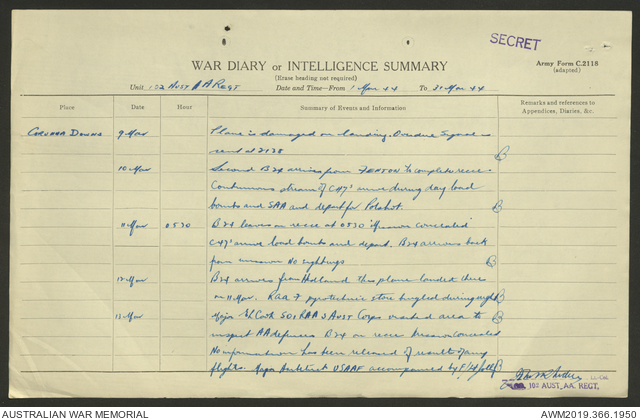 SECRET
WAR DIARY or INTELLIGENCE SUMMARY
Army Form C.2118
(adapted)
(Erase heading not required)
Unit 102 AUST AA REGT Date and Time—From 1 Mar 44 To 31 Mar 44
Place Date Hour Summary of Events and Information Remarks and references to Appendices, Diaries, &c.
CORUNNA DOWNS 9 Mar Plane is damaged on landing. Overdue Signal is
sent at 2138
10 Mar Second B24 arrives from FENTON to complete recce.
Continuous stream of C47s arrive during day load
bombs and SAA and depart for Potshot.
11 Mar 0530 B24 leaves on recce at 0530 Mission concealed
C47s arrive load bombs and depart. B24 arrives back
from mission No sightings
12 Mar B24 arrives from Hedland This plane landed there
on 11 Mar. RAAF pyrotechnic store burgled during night
13 Mar Major Cook SO1 RAA 3 Aust Corps visited area to
inspect AA defences B24 on recce Mission concealed
No information has been released of result of any
flights. Major USAAF accompanied by F/Lt
Lt-Col
102 AUST. AA. REGT.
AUSTRALIAN WAR MEMORIAL AWM2019.366.1950